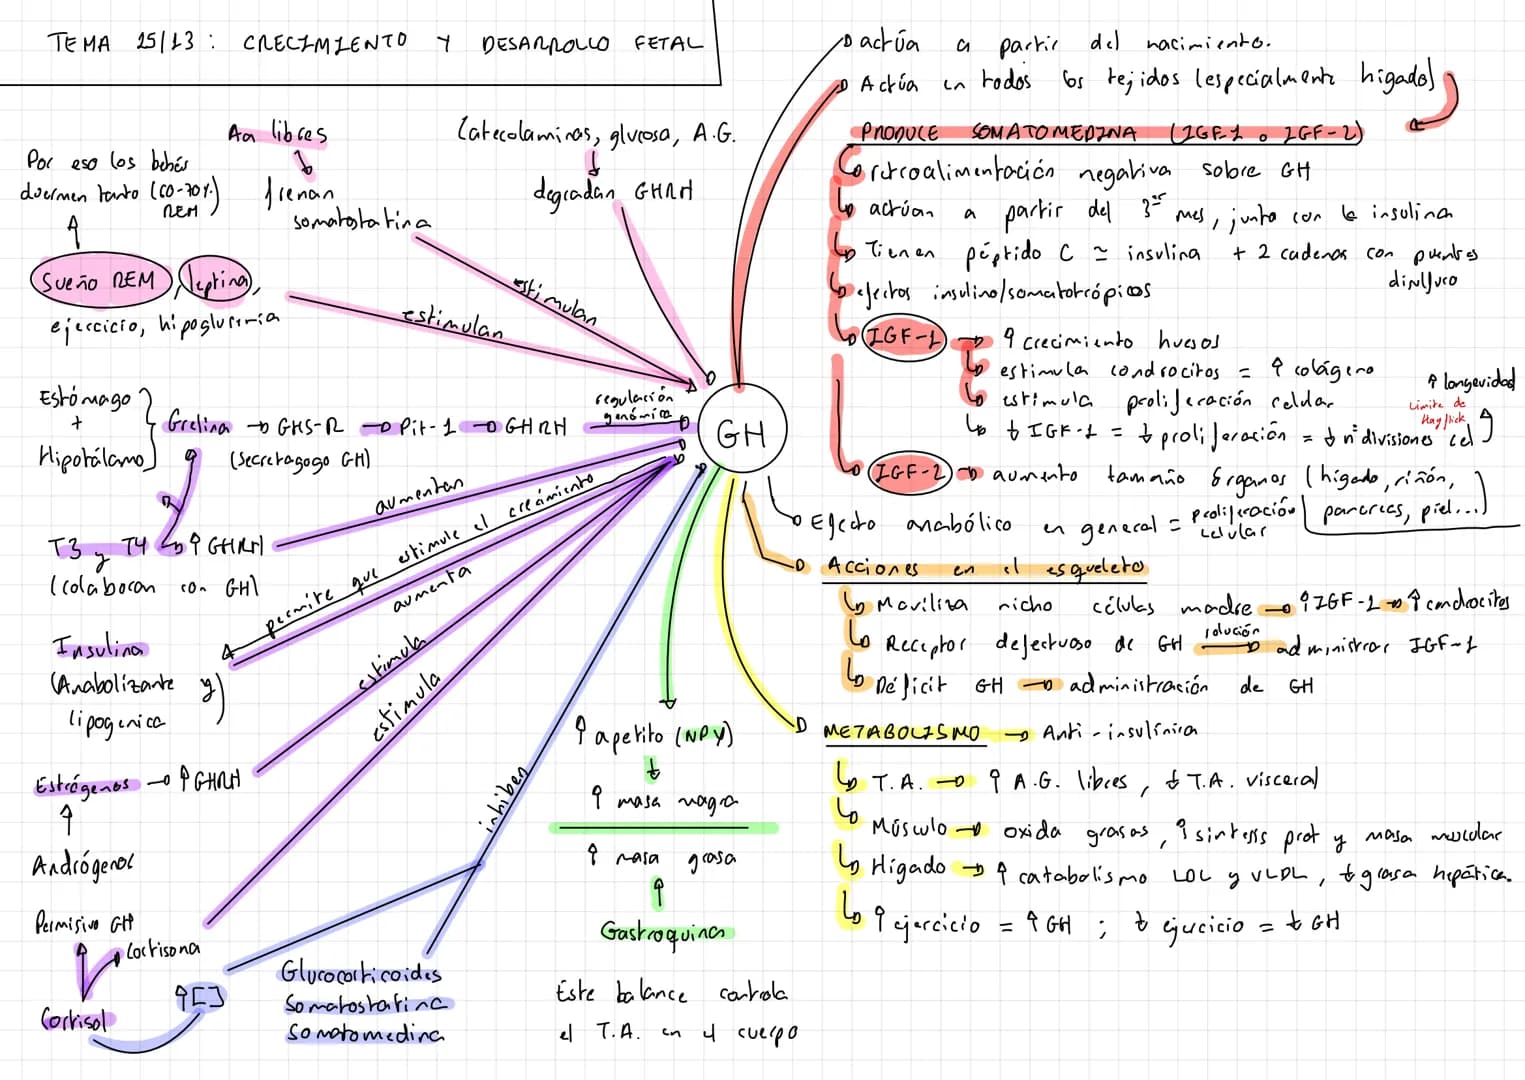 TEMA 25/13: CRECIMIENTO Y DESARROLLO FETAL
actúa a partir del nacimiento.
Actúa en todos los tejidos (especialmente hígado)
PRODUCE SOMATOMEDINA (IGF-1 o IGF-2)
retroalimentación negativa sobre GH
actúan a partir del 3er mes, junto con la insulina
Tienen péptido C ≃ insulina + 2 cadenas con puentes
disulfuro
efectos insulino/somatotrópicos
IGF-1 → ↑ crecimiento huesos
estimula condrocitos = ↑ colágeno
estimula proliferación celular
↓ IGF-1 = ↓ proliferación = ↓ nº divisiones cel
↑ longevidad
Límite de
Hayflick
IGF-2 → aumento tamaño órganos (hígado, riñón,
páncreas, piel...)
Efecto anabólico en general = proliferación
celular
Acciones en el esqueleto
Moviliza nicho células madre → ↑ IGF-1 → ↑ condrocitos
Receptor defectuoso de GH solución → administrar IGF-1
Déficit GH → administración de GH
METABOLISMO → Anti-insulínica
T.A. → ↑ A.G. libres, ↓ T.A. visceral
Músculo → oxida grasas, ↑ síntesis prot y masa muscular
Hígado → ↑ catabolismo LDL y VLDL, ↓ grasa hepática.
↑ ejercicio = ↑ GH ; ↓ ejercicio = ↓ GH
Aa libres
frenan
somatostatina
estimulan
Catecolaminas, glucosa, A.G.
degradan GHRH
Por eso los bebés
duermen tanto (60-70%
REM)
Sueño REM, leptina,
ejercicio, hipoglucemia
estimulan
Estómago
+
Hipotálamo
Grelina → GHS-R → Pit-1 → GHRH
(Secretagogo GH)
regulación
genómica
GH
T3 y T4 → ↑ GHRH
(colaboran con GH)
aumentan
Insulina
(Anabolizante y
lipogénica)
permite que estimule el crecimiento
aumenta
Estrógenos → ↑ GHRH
estimula
Andrógenos
estimula
Permisivo GH
Cortisona
Cortisol
↑[]
Glucocorticoides
Somatostatina
Somatomedina
inhiben
↑ apetito (NPY)
↑ masa magra
↑ masa grasa
Gastroquinas
Este balance controla
el T.A. en el cuerpo